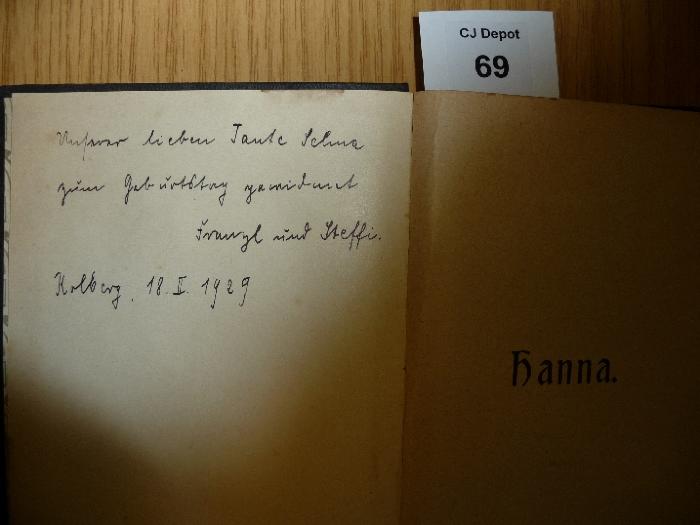 CJ Depot
69
Unserer lieben Tante Selma
zum Geburtstag gewidmet
Franzl und Steffi.
Kolberg, 18. II. 1929
Hanna.